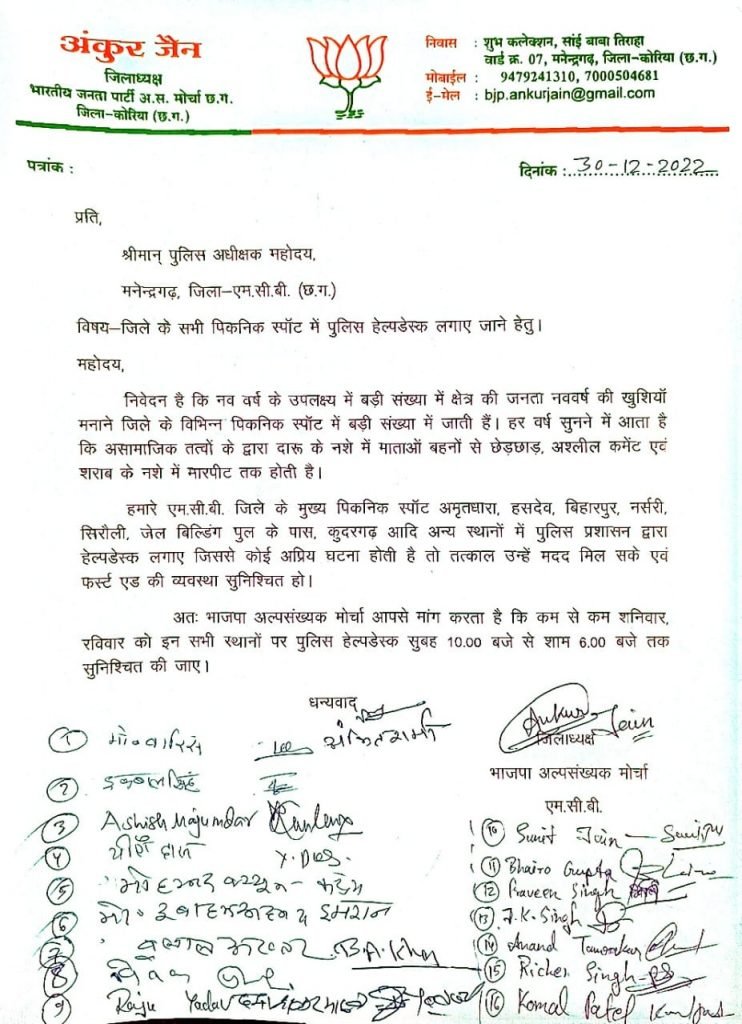 अंकुर जैन
जिलाध्यक्ष
भारतीय जनता पार्टी अ.स. मोर्चा छ.ग.
जिला-कोरिया (छ.ग.)
निवास : शुभ कलेक्शन, सांई बाबा तिराहा
वार्ड क्र. 07, मनेन्द्रगढ़, जिला-कोरिया (छ.ग.)
मोबाईल : 9479241310, 7000504681
ई-मेल : bjp.ankurjain@gmail.com
पत्रांक :
दिनांक :..30-12-2022
प्रति,
श्रीमान् पुलिस अधीक्षक महोदय,
मनेन्द्रगढ़, जिला-एम.सी.बी. (छ.ग.)
विषय-जिले के सभी पिकनिक स्पॉट में पुलिस हेल्पडेस्क लगाए जाने हेतु।
महोदय,
निवेदन है कि नव वर्ष के उपलक्ष्य में बड़ी संख्या में क्षेत्र की जनता नववर्ष की खुशियाँ
मनाने जिले के विभिन्न पिकनिक स्पॉट में बड़ी संख्या में जाती हैं। हर वर्ष सुनने में आता है
कि असामाजिक तत्वों के द्वारा दारू के नशे में माताओं बहनों से छेड़छाड़, अश्लील कमेंट एवं
शराब के नशे में मारपीट तक होती है।
हमारे एम.सी.बी. जिले के मुख्य पिकनिक स्पॉट अमृतधारा, हसदेव, बिहारपुर, नर्सरी,
सिरौली, जेल बिल्डिंग पुल के पास, कुदरगढ़ आदि अन्य स्थानों में पुलिस प्रशासन द्वारा
हेल्पडेस्क लगाए जिससे कोई अप्रिय घटना होती है तो तत्काल उन्हें मदद मिल सके एवं
फर्स्ट एड की व्यवस्था सुनिश्चित हो।
अतः भाजपा अल्पसंख्यक मोर्चा आपसे मांग करता है कि कम से कम शनिवार,
रविवार को इन सभी स्थानों पर पुलिस हेल्पडेस्क सुबह 10.00 बजे से शाम 6.00 बजे तक
सुनिश्चित की जाए।
धन्यवाद
Ankur Jain
जिलाध्यक्ष
भाजपा अल्पसंख्यक मोर्चा
एम.सी.बी.
1 मो० वारिस
2
3 Ashish Majumdar
4 Y. Das.
5
6 मो०
7 B.A. Khan
8
9 Raju Yadav
10 Sumit Jain
11 Bhairo Gupta
12 Praveen Singh
13 J.K. Singh
14 Anand
15 Richen Singh
16 Komal Patel